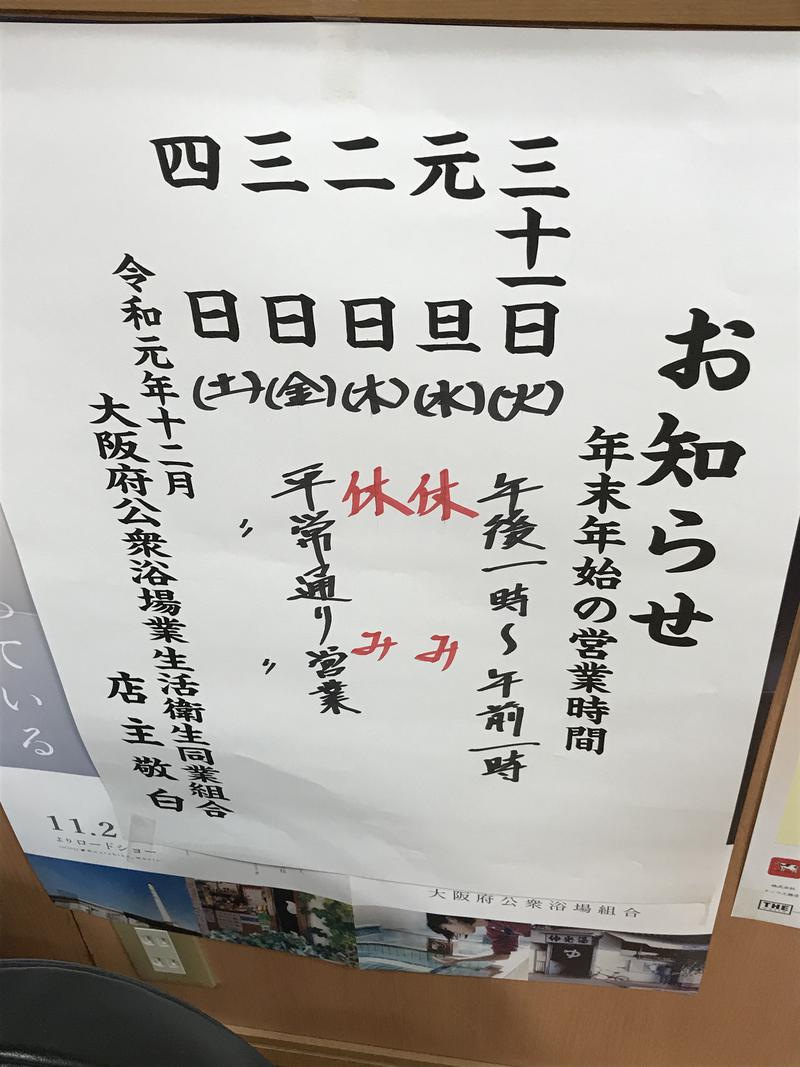 お知らせ
年末年始の営業時間
三十一日(火) 午後一時〜午前一時
元旦(水) 休み
二日(木) 休み
三日(金) 平常通り営業
四日(土) 〃 〃
令和元年十二月
大阪府公衆浴場業生活衛生同業組合
店主敬白
大阪府公衆浴場組合
ている
11.2
よりロードショー
THE